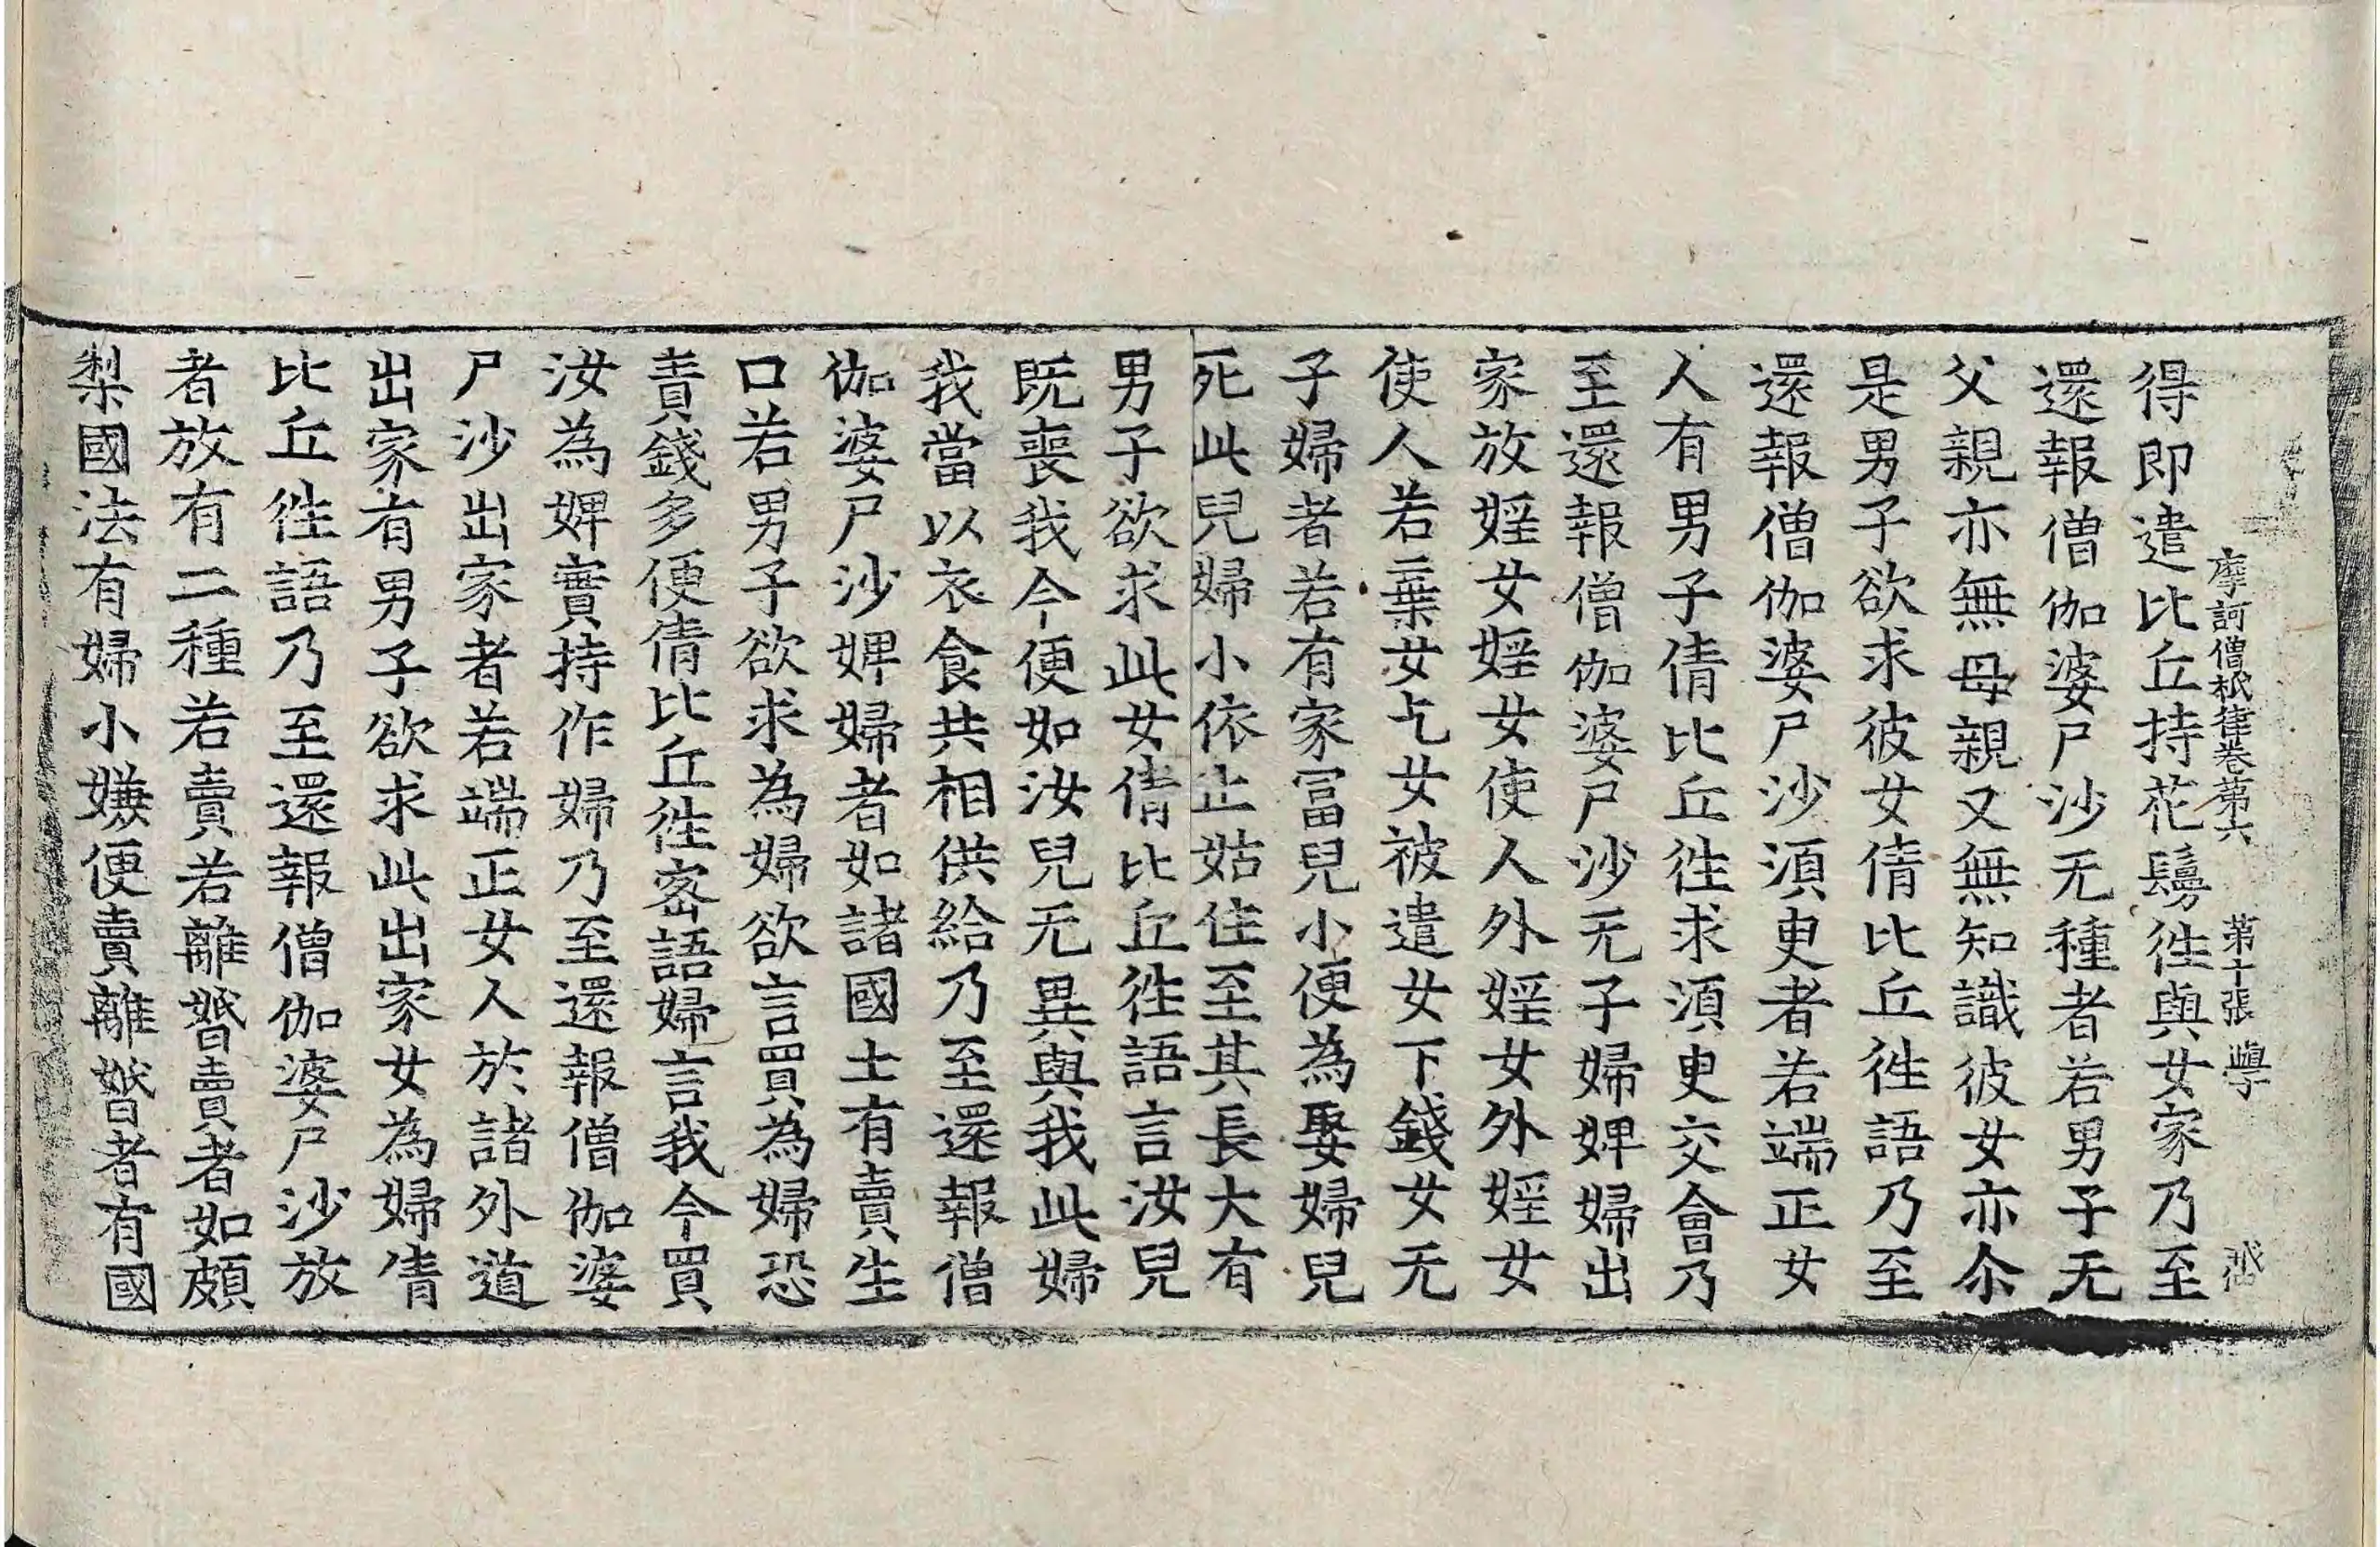 得即遣比丘持花鬘徃與女家乃至
摩訶僧祇律卷第六 第十張 學
還報僧伽婆尸沙无種者若男子无
父親亦無母親又無知識彼女亦尒
是男子欲求彼女倩比丘徃語乃至
還報僧伽婆尸沙湏更者若端正女
人有男子倩比丘徃求湏更交會乃
至還報僧伽婆尸沙无子婦婢婦出
家放婬女婬女使人外婬女外婬女
使人若二葉女乞女被遣女下錢女无
子婦者若有家冨兒小便為娶婦兒
死此兒婦小依止姑住至其長大有
男子欲求此女倩比丘徃語言汝兒
既喪我今便如汝兒无異與我此婦
我當以衣食共相供給乃至還報僧
伽婆尸沙婢婦者如諸國土有賣生
口若男子欲求為婦欲言買為婦恐
責錢多便倩比丘徃宻語婦言我今買
汝為婢實持作婦乃至還報僧伽婆
尸沙出家者若端正女人於諸外道
出家有男子欲求此出家女為婦倩
比丘徃語乃至還報僧伽婆尸沙放
者放有二種若賣若離婚賣者如頗
梨國法有婦小嫌便賣離婚者有國